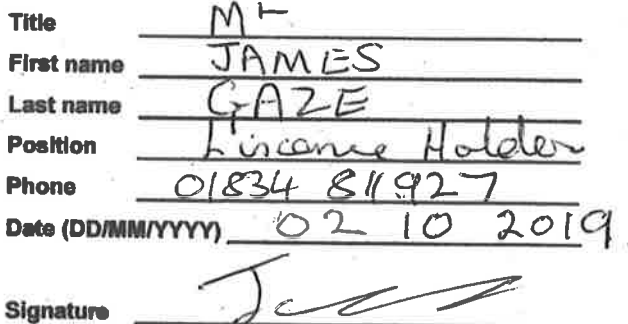 Title Mr
First name JAMES
Last name GAZE
Position Liscance Holder
Phone 01834 811927
Date (DD/MM/YYYY) 02 10 2019
Signature